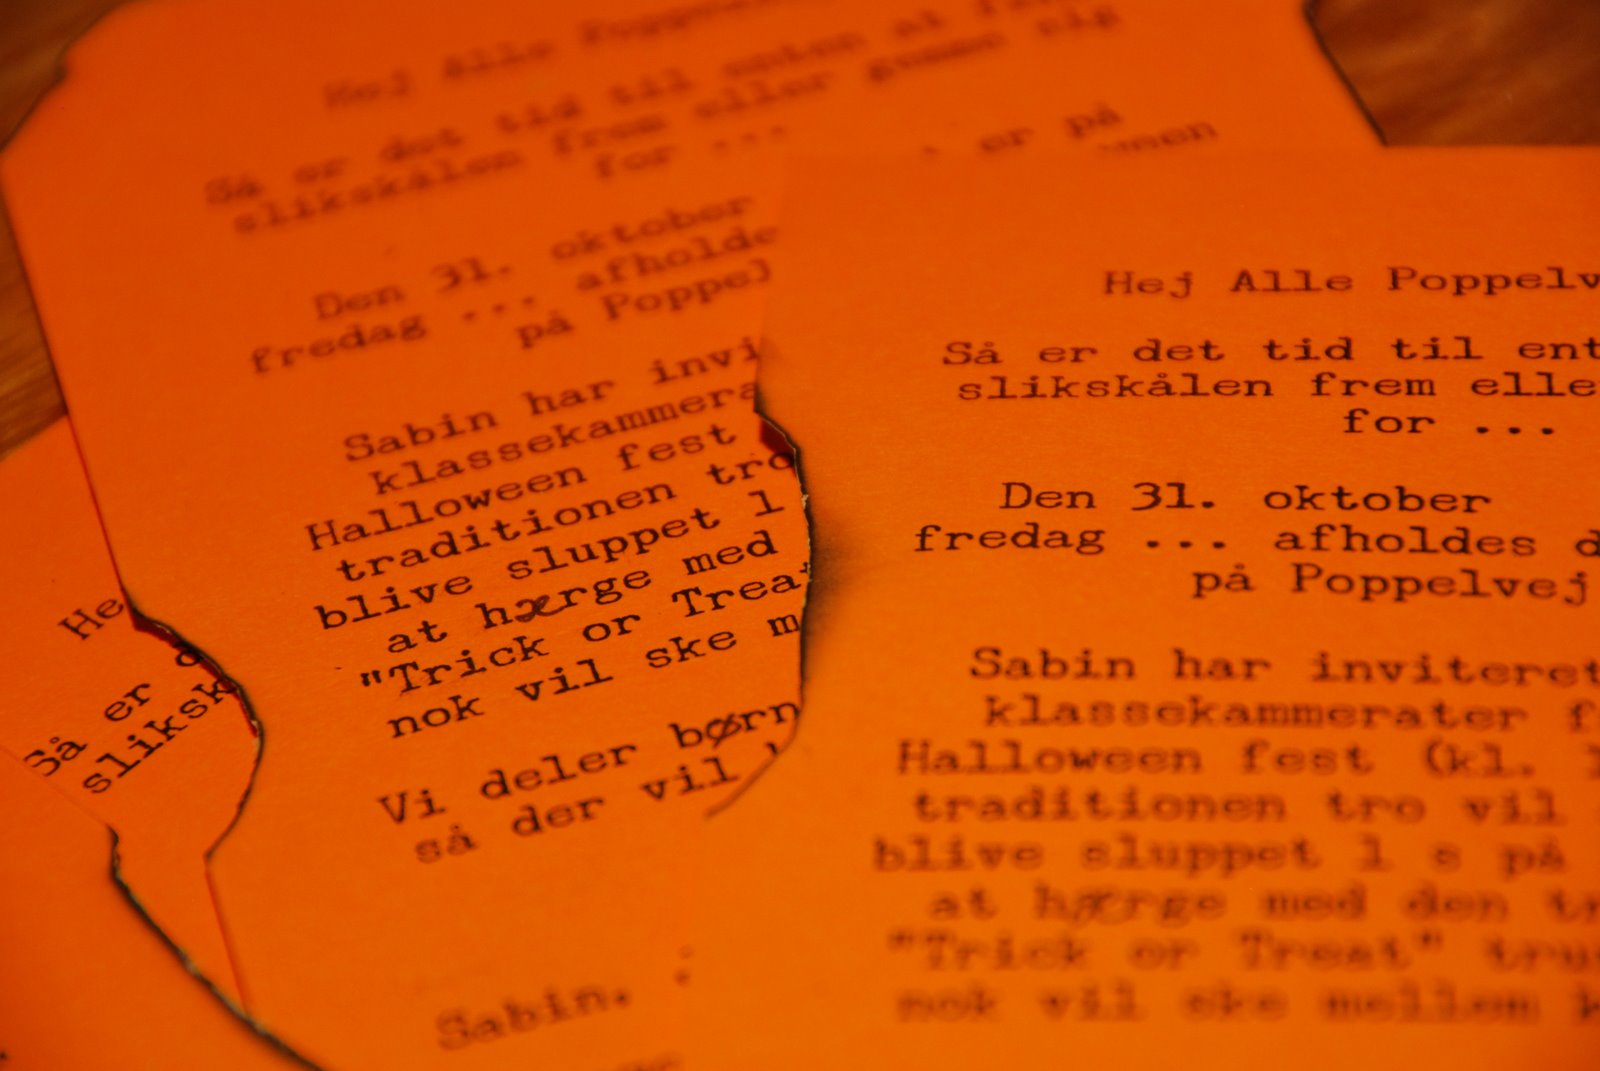 Hej Alle Poppelv
Så er det tid til enten at
slikskålen frem eller gemme sig
for ...
er på
Den 31. oktober
fredag ... afholde
på Poppel
Sabin har invi
klassekammera
Halloween fest
traditionen tro
blive sluppet l
at hærge med
"Trick or Trea
nok vil ske m
Vi deler børn
så der vil
Sabin.
Hej Alle Poppelv
Så er det tid til ent
slikskålen frem elle
for ...
Den 31. oktober
fredag ... afholdes d
på Poppelvej
Sabin har inviteret
klassekammerater f
Halloween fest (kl. 1
traditionen tro vil
blive sluppet l s på
at hærge med den tr
"Trick or Treat" tru
nok vil ske mellem k
He
Så er d
sliksk